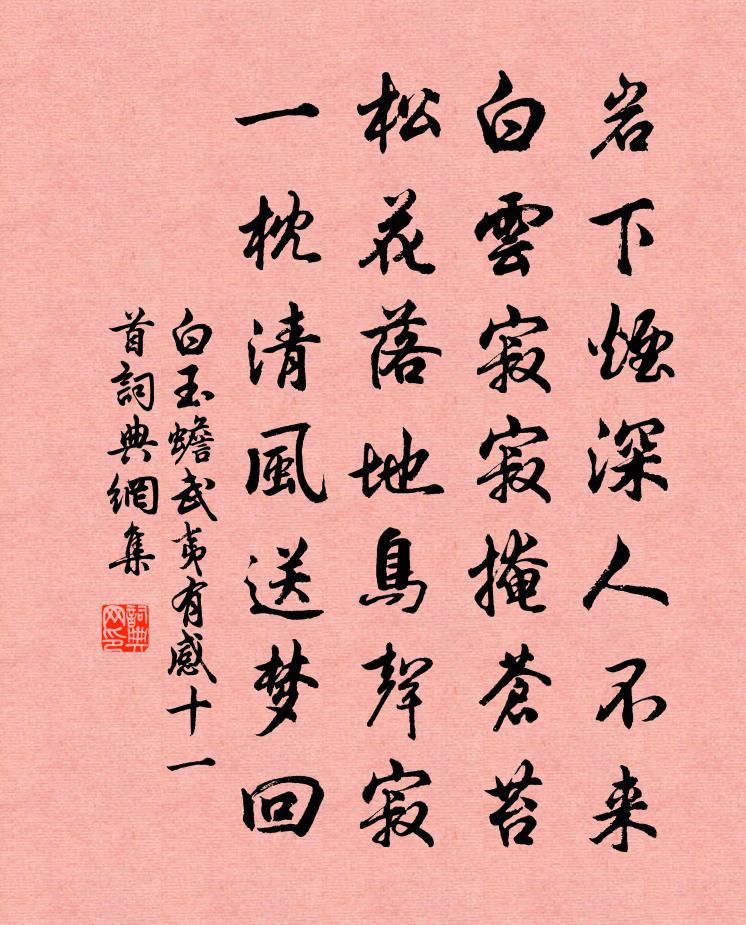 岩下煙深人不来
白雲寂寂掩蒼苔
松花落地鳥聲寂
一枕清風送梦回
白玉蟾武夷有感十一
首詞典網集
詞典
网印